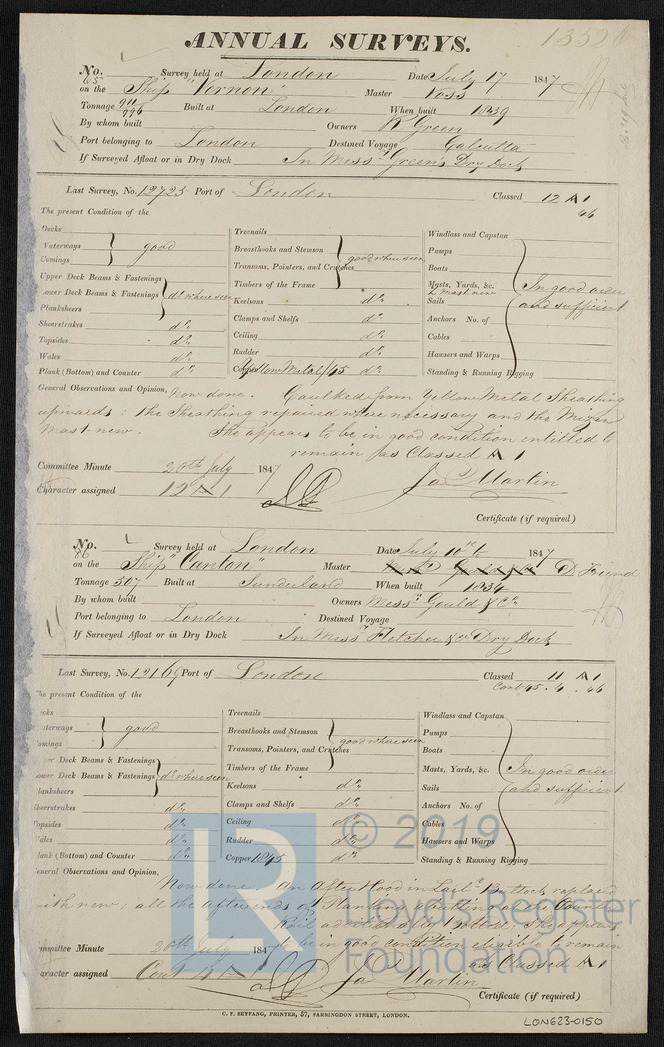 ANNUAL SURVEYS.
No. 65 Survey held at London Date July 17 1847
on the Ship "Vernon" Master Voss
Tonnage 911/996 Built at London When built 1839
By whom built Owners R Green
Port belonging to London Destined Voyage Calcutta
If Surveyed Afloat or in Dry Dock In Messrs Green's Dry Dock
Last Survey, No. 12723 Port of London Classed 12 A 1
46
The present Condition of the
Decks
Waterways good
Comings
Upper Deck Beams & Fastenings
Lower Deck Beams & Fastenings do where seen
Planksheers
Sheerstrakes do
Topsides do
Wales do
Plank (Bottom) and Counter do
Treenails
Breasthooks and Stemson good where seen
Transoms, Pointers, and Crutches
Timbers of the Frame
Keelsons do
Clamps and Shelfs do
Ceiling do
Rudder do
Copper Yellow Metal /45 do
Windlass and Capstan
Pumps
Boats
Masts, Yards, &c. In good order
Mast new
Sails and sufficient
Anchors No. of
Cables
Hawsers and Warps
Standing & Running Rigging
General Observations and Opinion, Now done. Caulked from Yellow Metal Sheathing
upwards: the Sheathing repaired where necessary and the Mizen
Mast new. She appears to be in good condition entitled to
remain as Classed A 1
Committee Minute 20th July 1847
Character assigned 12 A 1 Jas Martin
Certificate (if required)
No. 66 Survey held at London Date July 10th 1847
on the Ship "Canton" Master D Friend
Tonnage 507 Built at Sunderland When built 1834
By whom built Owners Messrs Gould & Co
Port belonging to London Destined Voyage
If Surveyed Afloat or in Dry Dock In Messrs Fletcher & Co Dry Dock
Last Survey, No. 12169 Port of London Classed 11 A 1
Cont 45. 4. 46
he present Condition of the
cks
aterways good
omings
er Deck Beams & Fastenings
ower Deck Beams & Fastenings do where seen
lanksheers
heerstrakes do
opsides do
ales do
lank (Bottom) and Counter do
Treenails
Breasthooks and Stemson good where seen
Transoms, Pointers, and Crutches
Timbers of the Frame
Keelsons do
Clamps and Shelfs do
Ceiling do
Rudder do
Copper 1845 do
Windlass and Capstan
Pumps
Boats
Masts, Yards, &c. In good order
Sails and sufficient
Anchors No. of
Cables
Hawsers and Warps
Standing & Running Rigging
eneral Observations and Opinion,
Now done. An After Hood in Larbd Buttock replaced
with new; all the After ends of Planking
She appears
to be in good condition eligible to remain
as Classed A 1
mmittee Minute 20th July 1847
aracter assigned Cont A 1 Jas Martin
Certificate (if required)
C. F. SEYFANG, PRINTER, 57, FARRINGDON STREET, LONDON.
LON623-0150
© 2019
Lloyd's Register
Foundation
LR